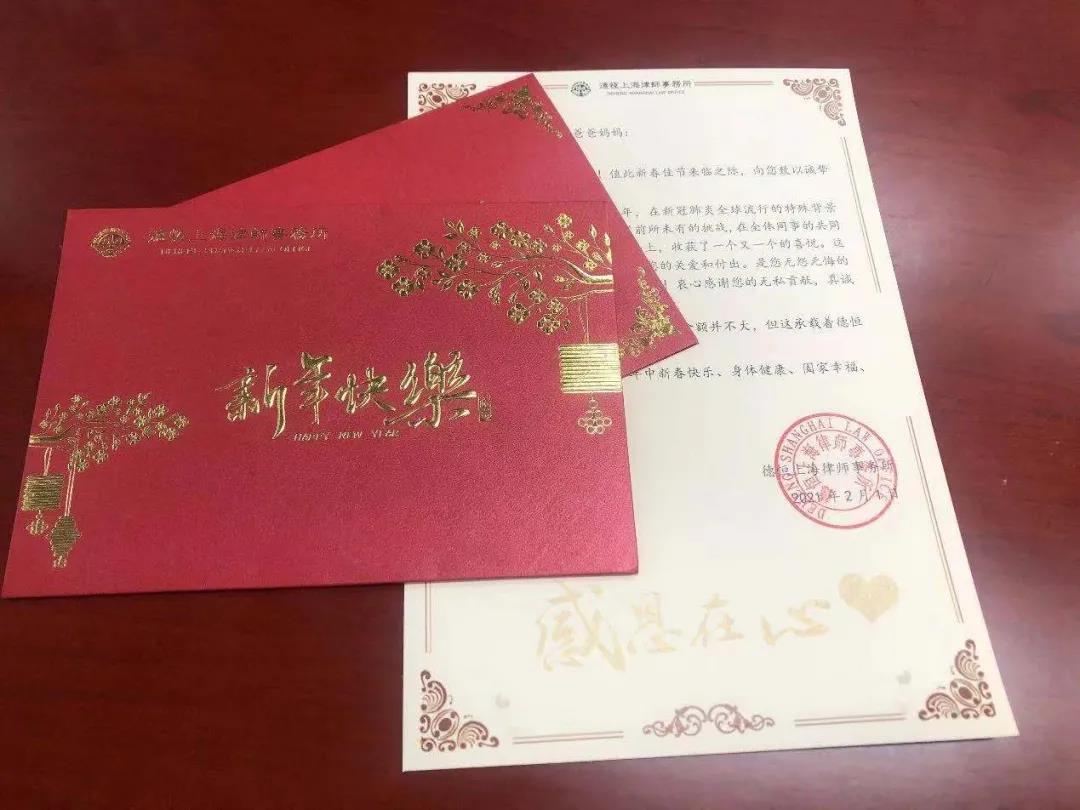 德恆上海律師事務所
DEHENG SHANGHAI LAW OFFICE
新年快樂
HAPPY NEW YEAR
德恆上海律師事務所
DEHENG SHANGHAI LAW OFFICE
爸爸妈妈：
！值此新春佳节来临之际，向您致以诚挚
年，在新冠肺炎全球流行的特殊背景
前所未有的挑战，在全体同事的共同
上，收获了一个又一个的喜悦。这
的关爱和付出。是您无怨无悔的
！衷心感谢您的无私贡献，真诚
额并不大，但这承载着德恒
年中新春快乐、身体健康、阖家幸福、
德恒上海律师事务所
2021年2月1日
DEHENG SHANGHAI LAW OFFICE
感恩在心